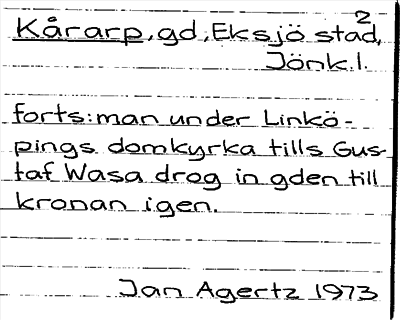 2
Kårarp, gd, Eksjö stad,
Jönk.l.
forts: man under Linkö-
pings domkyrka tills Gus-
taf Wasa drog in gden till
kronan igen.
Jan Agertz 1973